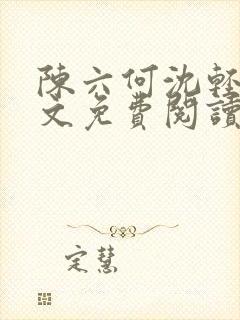 陳六何沈輕
文免費閱讀
定慧